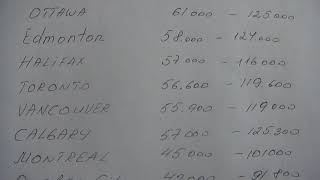 OTTAWA 61.000 - 125.000
Edmonton 58.000 - 124.000
HALIFAX 57.000 - 116.000
TORONTO 56.600 - 119.600
VANCOUVER 55.900 - 119.000
CALGARY 57.000 - 125.300
MONTREAL 45.000 - 101000